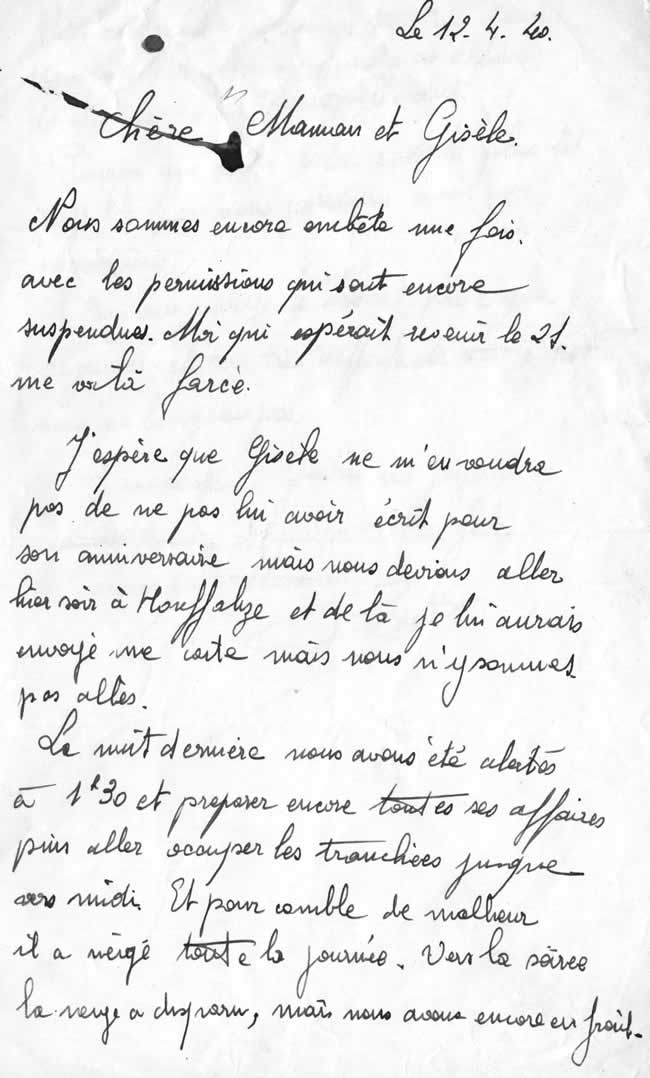 Le 12-4-40.
Chère Maman et Gisèle.
Nous sommes encore embêté une fois.
avec les permissions qui sont encore
suspendues. Moi qui espérait revenir le 21.
me voilà farcé.
J'espère que Gisèle ne m'en voudra
pas de ne pas lui avoir écrit pour
son anniversaire mais nous devions aller
hier soir à Houffalize et de là je lui aurais
envoyé une carte mais nous n'y sommes
pas allés.
La nuit dernière nous avons été alertés
à 1h30 et préparer encore toutes ses affaires
puis aller occuper les tranchées jusque
vers midi. Et pour comble de malheur
il a neigé toute la journée. Vers la soirée
la neige a disparu, mais nous avons encore eu froid.